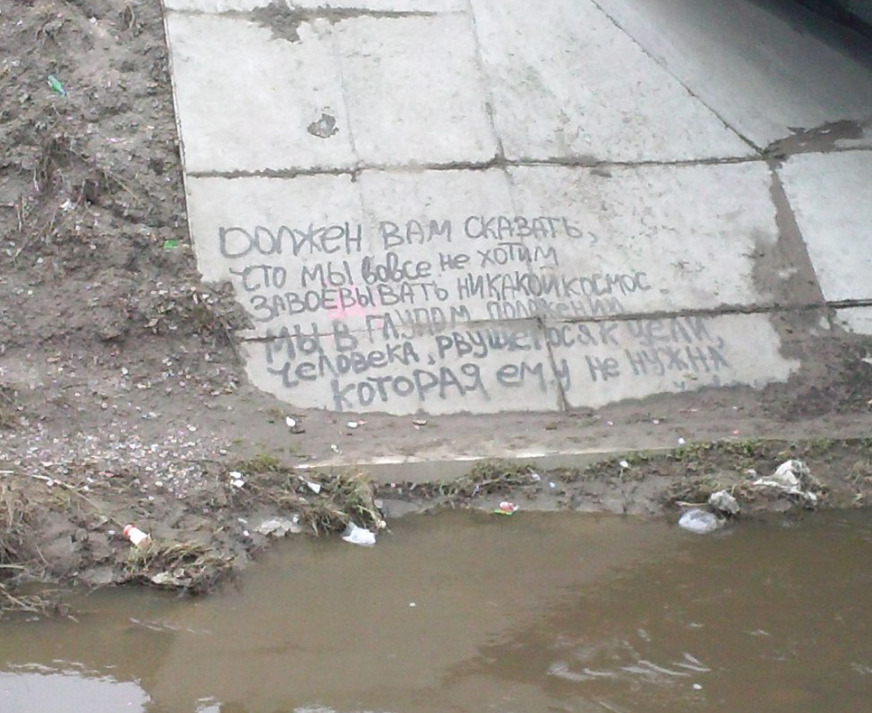 ДОЛЖЕН ВАМ СКАЗАТЬ,
что мы вовсе не хотим
ЗАВОЕВЫВАТЬ НИКАКОЙ КОСМОС
МЫ В ГЛУПОМ ПОЛОЖЕНИИ
человека, рвущегося к цели,
КОТОРАЯ ему не нужна